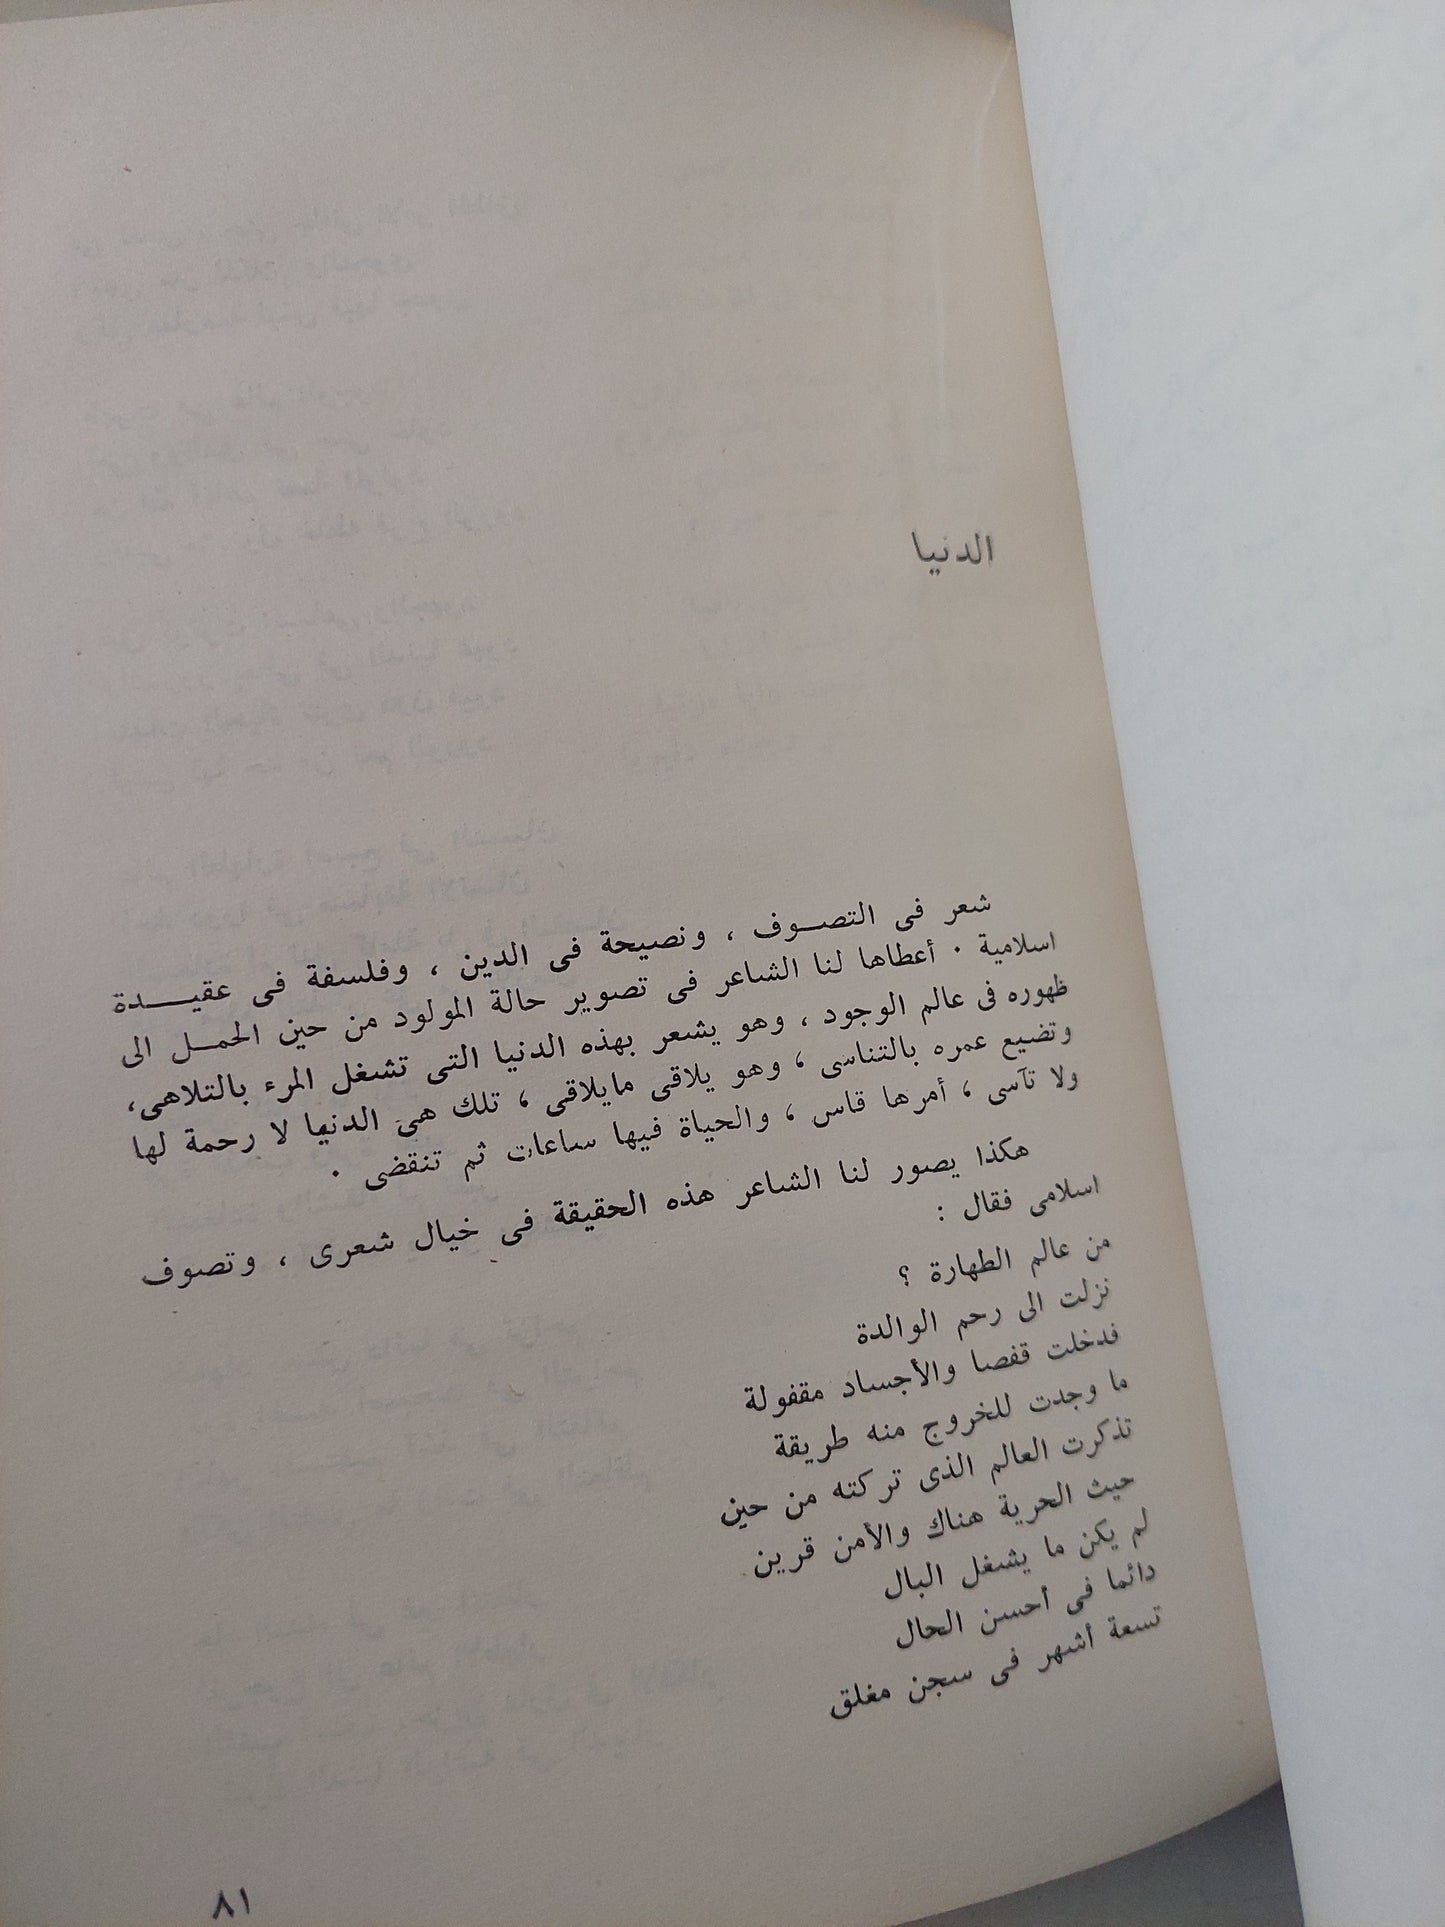 الدنيا
شعر فى التصوف ، ونصيحة فى الدين ، وفلسفة فى عقيدة
اسلامية ٠ أعطاها لنا الشاعر فى تصوير حالة المولود من حين الحمل الى
ظهوره فى عالم الوجود ، وهو يشعر بهذه الدنيا التى تشغل المرء بالتلاهى،
وتضيع عمره بالتناسى ، وهو يلاقى مايلاقى ، تلك هى الدنيا لا رحمة لها
ولا تآسى ، أمرها قاس ، والحياة فيها ساعات ثم تنقضى ٠
هكذا يصور لنا الشاعر هذه الحقيقة فى خيال شعرى ، وتصوف
اسلامى فقال :
من عالم الطهارة ؟
نزلت الى رحم الوالدة
فدخلت قفصا والأجساد مقفولة
ما وجدت للخروج منه طريقة
تذكرت العالم الذى تركته من حين
حيث الحرية هناك والأمن قرين
لم يكن ما يشغل البال
دائما فى أحسن الحال
تسعة أشهر فى سجن مغلق
٨١